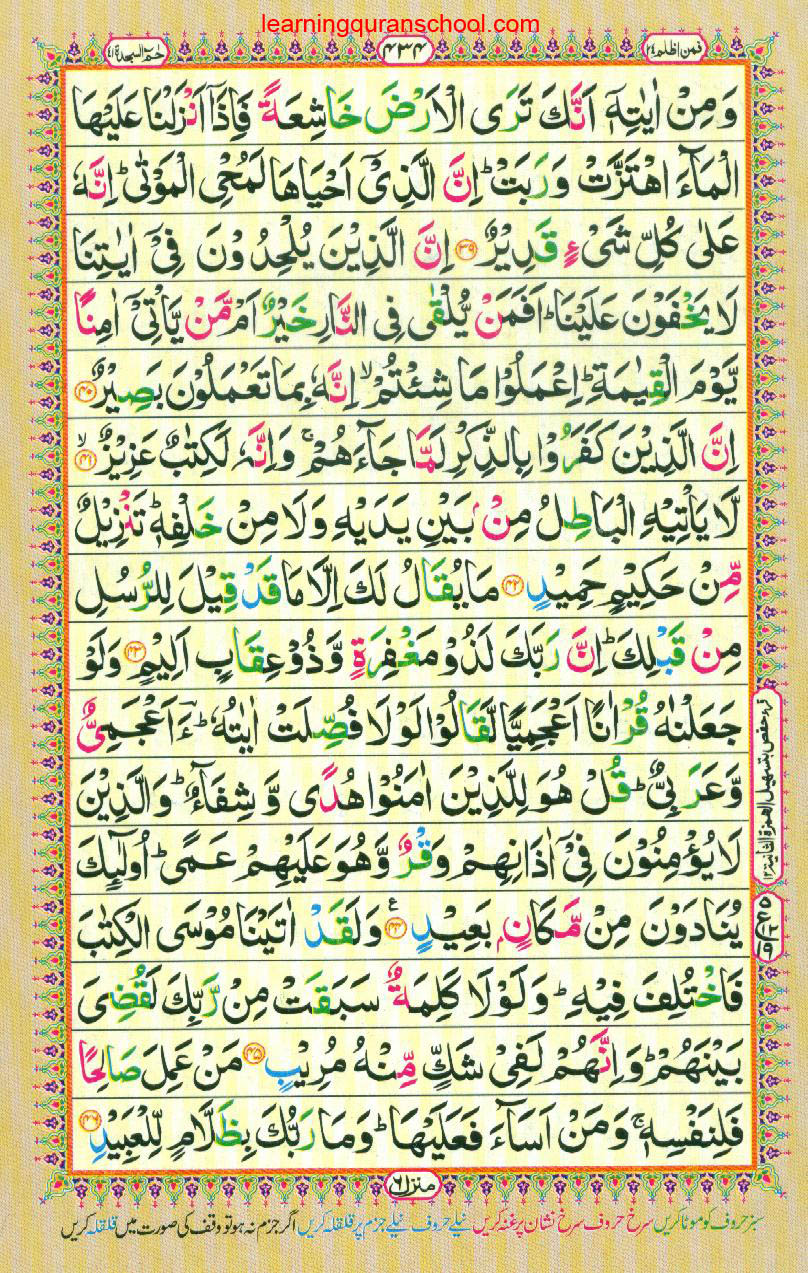 learningquranschool.com
فمن اظلم ٢٤
٤٣٤
حٰمٓ السجدة ٤١
وَمِنْ اٰيٰتِهٖٓ اَنَّكَ تَرَى الْاَرْضَ خَاشِعَةً فَاِذَآ اَنْزَلْنَا عَلَيْهَا
الْمَآءَ اهْتَزَّتْ وَرَبَتْ ؕ اِنَّ الَّذِيْٓ اَحْيَاهَا لَمُحْيِ الْمَوْتٰى ؕ اِنَّهٗ
عَلٰى كُلِّ شَيْءٍ قَدِيْرٌ ﴿۳۹﴾ اِنَّ الَّذِيْنَ يُلْحِدُوْنَ فِيْٓ اٰيٰتِنَا
لَا يَخْفَوْنَ عَلَيْنَا ؕ اَفَمَنْ يُّلْقٰى فِي النَّارِ خَيْرٌ اَمْ مَّنْ يَّاْتِيْٓ اٰمِنًا
يَّوْمَ الْقِيٰمَةِ ؕ اِعْمَلُوْا مَا شِئْتُمْ ۙ اِنَّهٗ بِمَا تَعْمَلُوْنَ بَصِيْرٌ ﴿۴۰﴾
اِنَّ الَّذِيْنَ كَفَرُوْا بِالذِّكْرِ لَمَّا جَآءَهُمْ ۚ وَاِنَّهٗ لَكِتٰبٌ عَزِيْزٌ ﴿۴۱﴾ ۙ
لَّا يَاْتِيْهِ الْبَاطِلُ مِنْۢ بَيْنِ يَدَيْهِ وَلَا مِنْ خَلْفِهٖ ؕ تَنْزِيْلٌ
مِّنْ حَكِيْمٍ حَمِيْدٍ ﴿۴۲﴾ مَا يُقَالُ لَكَ اِلَّا مَا قَدْ قِيْلَ لِلرُّسُلِ
مِنْ قَبْلِكَ ؕ اِنَّ رَبَّكَ لَذُوْ مَغْفِرَةٍ وَّذُوْ عِقَابٍ اَلِيْمٍ ﴿۴۳﴾ وَلَوْ
جَعَلْنٰهُ قُرْاٰنًا اَعْجَمِيًّا لَّقَالُوْا لَوْلَا فُصِّلَتْ اٰيٰتُهٗ ؕ ءَاَعْجَمِيٌّ
وَّعَرَبِيٌّ ؕ قُلْ هُوَ لِلَّذِيْنَ اٰمَنُوْا هُدًى وَّشِفَآءٌ ؕ وَالَّذِيْنَ
لَا يُؤْمِنُوْنَ فِيْٓ اٰذَانِهِمْ وَقْرٌ وَّهُوَ عَلَيْهِمْ عَمًى ؕ اُولٰٓئِكَ
يُنَادَوْنَ مِنْ مَّكَانٍۭ بَعِيْدٍ ﴿۴۴﴾ ع وَلَقَدْ اٰتَيْنَا مُوْسَى الْكِتٰبَ
فَاخْتُلِفَ فِيْهِ ؕ وَلَوْلَا كَلِمَةٌ سَبَقَتْ مِنْ رَّبِّكَ لَقُضِيَ
بَيْنَهُمْ ؕ وَاِنَّهُمْ لَفِيْ شَكٍّ مِّنْهُ مُرِيْبٍ ﴿۴۵﴾ مَنْ عَمِلَ صَالِحًا
فَلِنَفْسِهٖ ۚ وَمَنْ اَسَآءَ فَعَلَيْهَا ؕ وَمَا رَبُّكَ بِظَلَّامٍ لِّلْعَبِيْدِ ﴿۴۶﴾
منزل ٦
سبز حروف کو موٹا کریں سرخ حروف سرخ نشان پر غنہ کریں نیلے حروف نیلے جزم پر قلقلہ کریں اگر جزم نہ ہو تو وقف کی صورت میں قلقلہ کریں